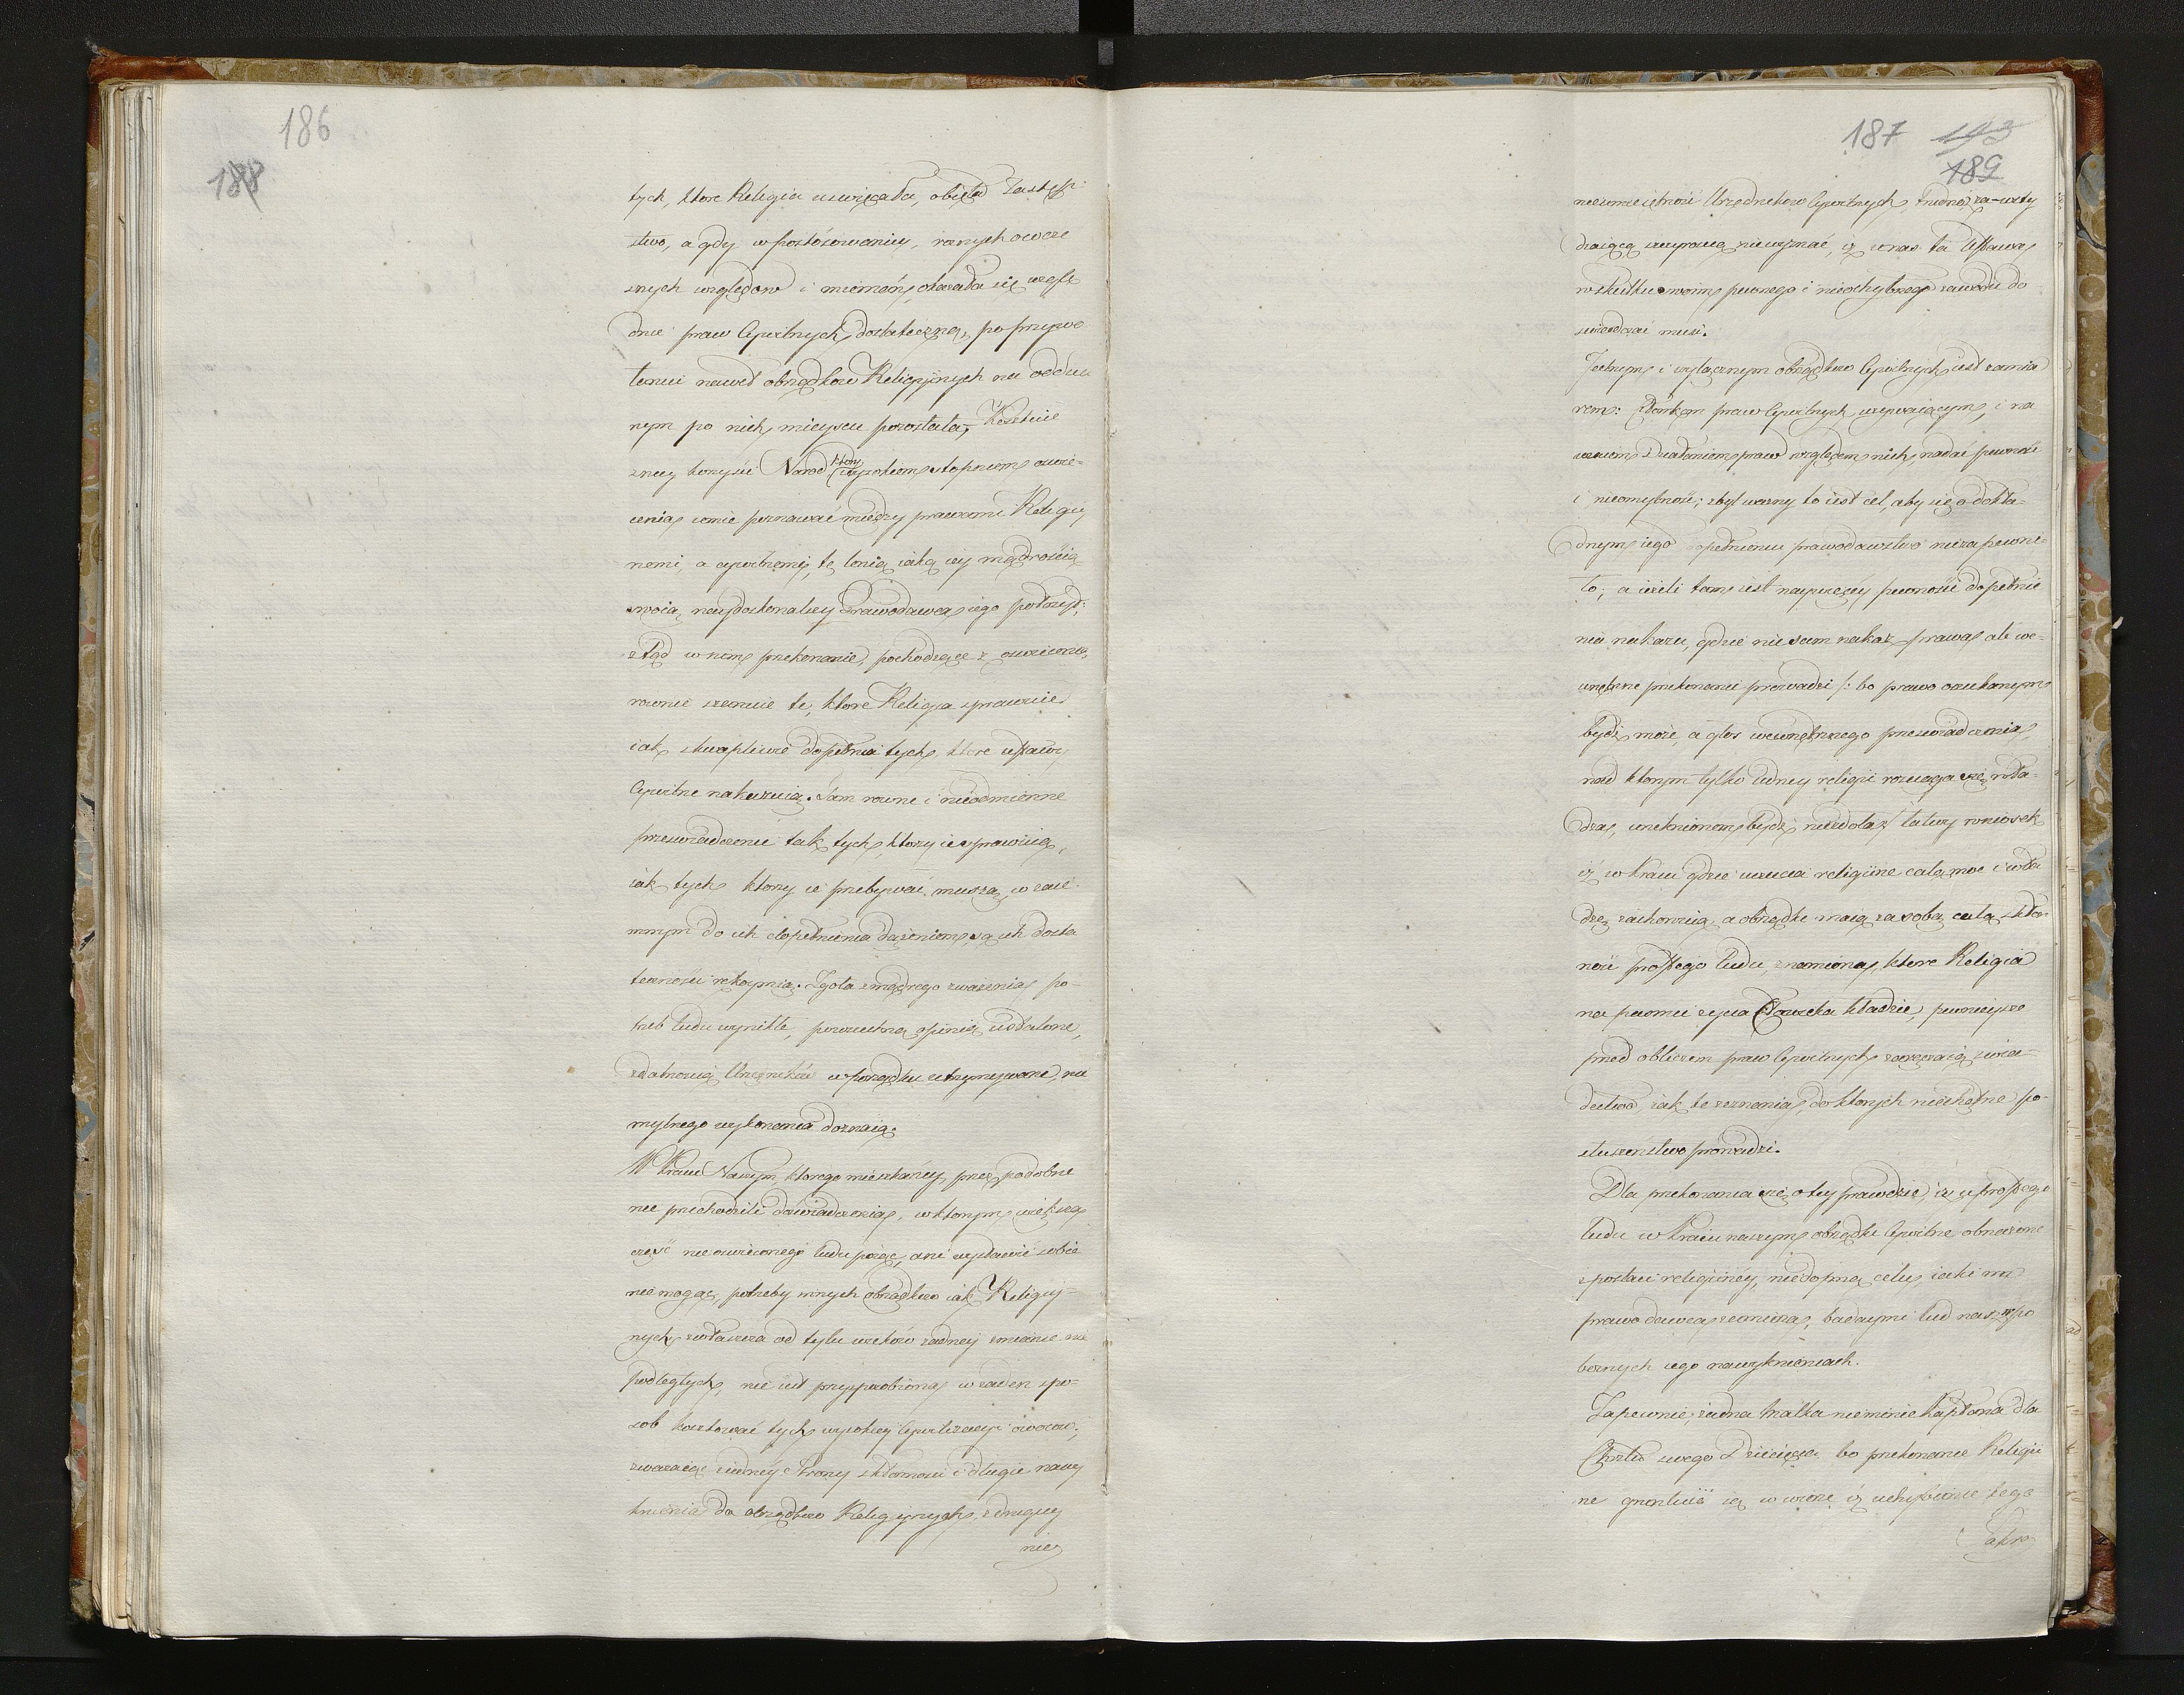 186
188
tych, ktore Religia uswięcała, obięła Zastęp-
stwo, a gdy w postósowaniu, roznych owcze
snych względow i mniemań, okazała się wzglę
dnie praw Cywilnych, dostateczną, po przywo
łaniu nawet obrządkow Religijnych na oddan
nym po nich mieyscu pozostała,
znay korzyści Narod ktory wysokiem stopniem oswie-
cenia umie poznawać między prawami Religiy
nemi, a cywilnemi, tę linią iaką ey mądrością
swoią, naydoskonalszy Prawodawca iego położył;
ztąd w nim przekonanie, pochodzące z oswiecenia,
rownie szanuie te, ktore Religia sprawuie
iak skwapliwie dopełnia tych, ktore ustawy
Cywilne nakazuią. Tam rowne i nieodmienne
przeswiadczenie tak tych, ktorzy ie sprawuią,
iak tych ktorzy ie przebywać muszą, w zaie-
mnym do ich dopełnienia dązeniem są ich dosta
teczności rękoymią. Zgoła z mądrego zwazenia po-
trzeb ludu wynikłe, powszechną opinią ustalone,
zdatnością Urzęników w porządku utrzymywane, nie
mylnego wykonania doznaią.
W Kraiu Naszym, ktorego mieszkańcy, przez podobne
nie przechodzili doświadczenia, w ktorym większa
część nieoswieconego ludu poiąć, ani wystawić sobie
nie mogąc, potrzeby innych obrządkow iak Religiy-
nych, zwłaszcza od tylu wiekow zadney zmianie nie
podległych, nie iest przysposobiona w zaden spo-
sob kosztować tych wysokiey Cywilizacyi owocow,
zwazaiąc z iedney strony skłonności i długie nawy
knienia do obrządkow Religijnych, z drugiey
nie
187 193
189
nieumieiętność Urzędnikow Cywilnych, trudno za-wsty
dzaiącą szczyrowią niewyznać, iż u nas ta Ustawa
w skutku swoim pewnego i nieochybnego zawodu do
swiadczać musi.
Jedynym i wyłącznym obrządkow Cywilnych iest zamia
rem: Członkom praw Cywilnych uzywaiącym, i na
wzaiem Działaniom praw względem nich, nadać pewność
i nieomylność; zbyt wazny to iest cel, aby się o dokła-
dnym iego dopełnieniu prawodawstwo niezapewni-
ło; a ieżeli tam iest naywięcey pewności dopełnie
nia nakazu, gdzie nie sam nakaz prawa, ale we-
wnętrzne przekonanie prowadzi /: bo prawo oszukanym
bydź może, a głos wewnętrznego przeswiadczenia,
nad ktorym tylko iedney religii rozciąga się wła-
dza, uniknionem bydź niezdoła:/ łatwy wniosek
iż w kraiu gdzie uczucia religiine całą moc i wła
dzę zachowuią, a obrządki maią za sobą całą skłon
ność prostego ludu, znamiona, ktore Religia
na pasmie zycia Człowieka kładzie, pewnieysze
przed obliczem praw Cywilnych zaręczaią swia-
dectwa, iak te zeznania, do ktorych niechętne po-
słuszeństwo prowadzi.
Dla przekonania się o tey prawdzie, iż u prostego
ludu w kraiu naszym obrządki Cywilne obnazone
z postaci religiiney, niedopną celu, iaki im
prawodawca zamierza, badaymy lud nasz w po
boznych iego nawyknieniach.
Zapewnie, zadna Matka nieminie Kapłana dla
Chrztu swego Dziecięcia, bo przekonanie Religii
ne gruntuie ią w wierze iż uchybienie tego
Sakra